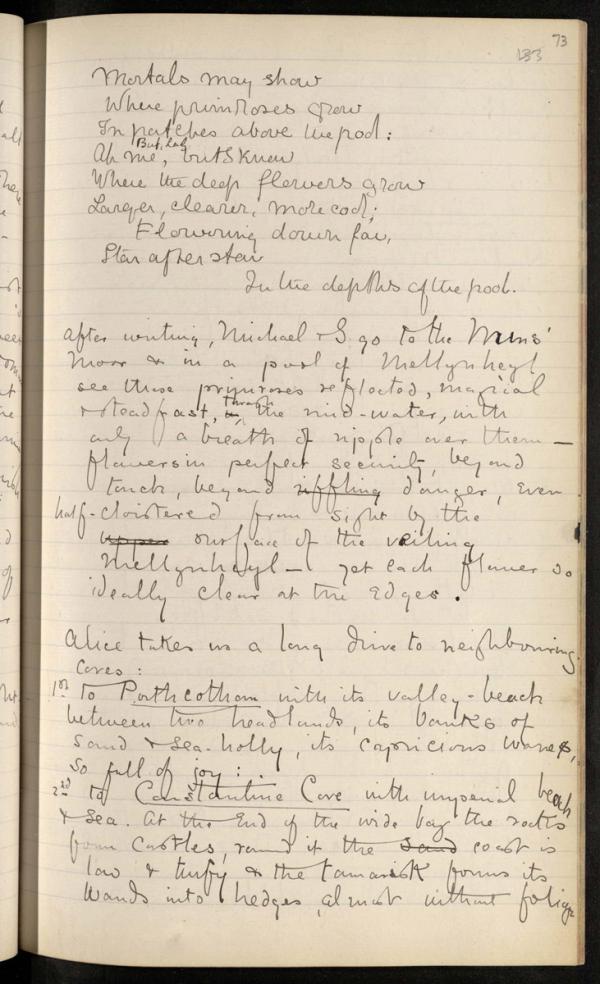 73
133
Mortals may show
Where primroses grow
In patches above the pool:
But, lad
Ah me, but I know
Where the deep flowers grow
Larger, clearer, more cool;
Flowering down far,
Star after star
In the depths of the pool.
After writing, Michael & I go to the Nuns'
Moor & in a pool of Mellynheyl
see these primroses reflected, magical
& steadfast, in through the mid-water, with
only a breath of ripple over them —
flowers in perfect security, beyond
touch, beyond riffling danger, even
half-cloistered from sight by the
upper surface of the veiling
Mellynheyl — yet each flower so
ideally clear at the edges.
Alice takes us a long drive to neighbouring
Coves:
1st to Porthcothan with its valley-beach
between two headlands, its banks of
sand & sea-holly, its capricious waves,
so full of joy:
2nd to Constantine Cove with imperial beach
& sea. At the End of the wide bay the rocks
form Castles, round it the sand coast is
low & turfy & the tamarisk forms its
Wands into hedges, almost without foliage